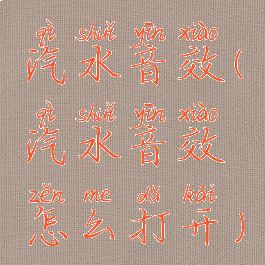 qì shuǐ yīn xiào
汽水音效(
qì shuǐ yīn xiào
汽水音效
zěn me dǎ kāi
怎么打开)